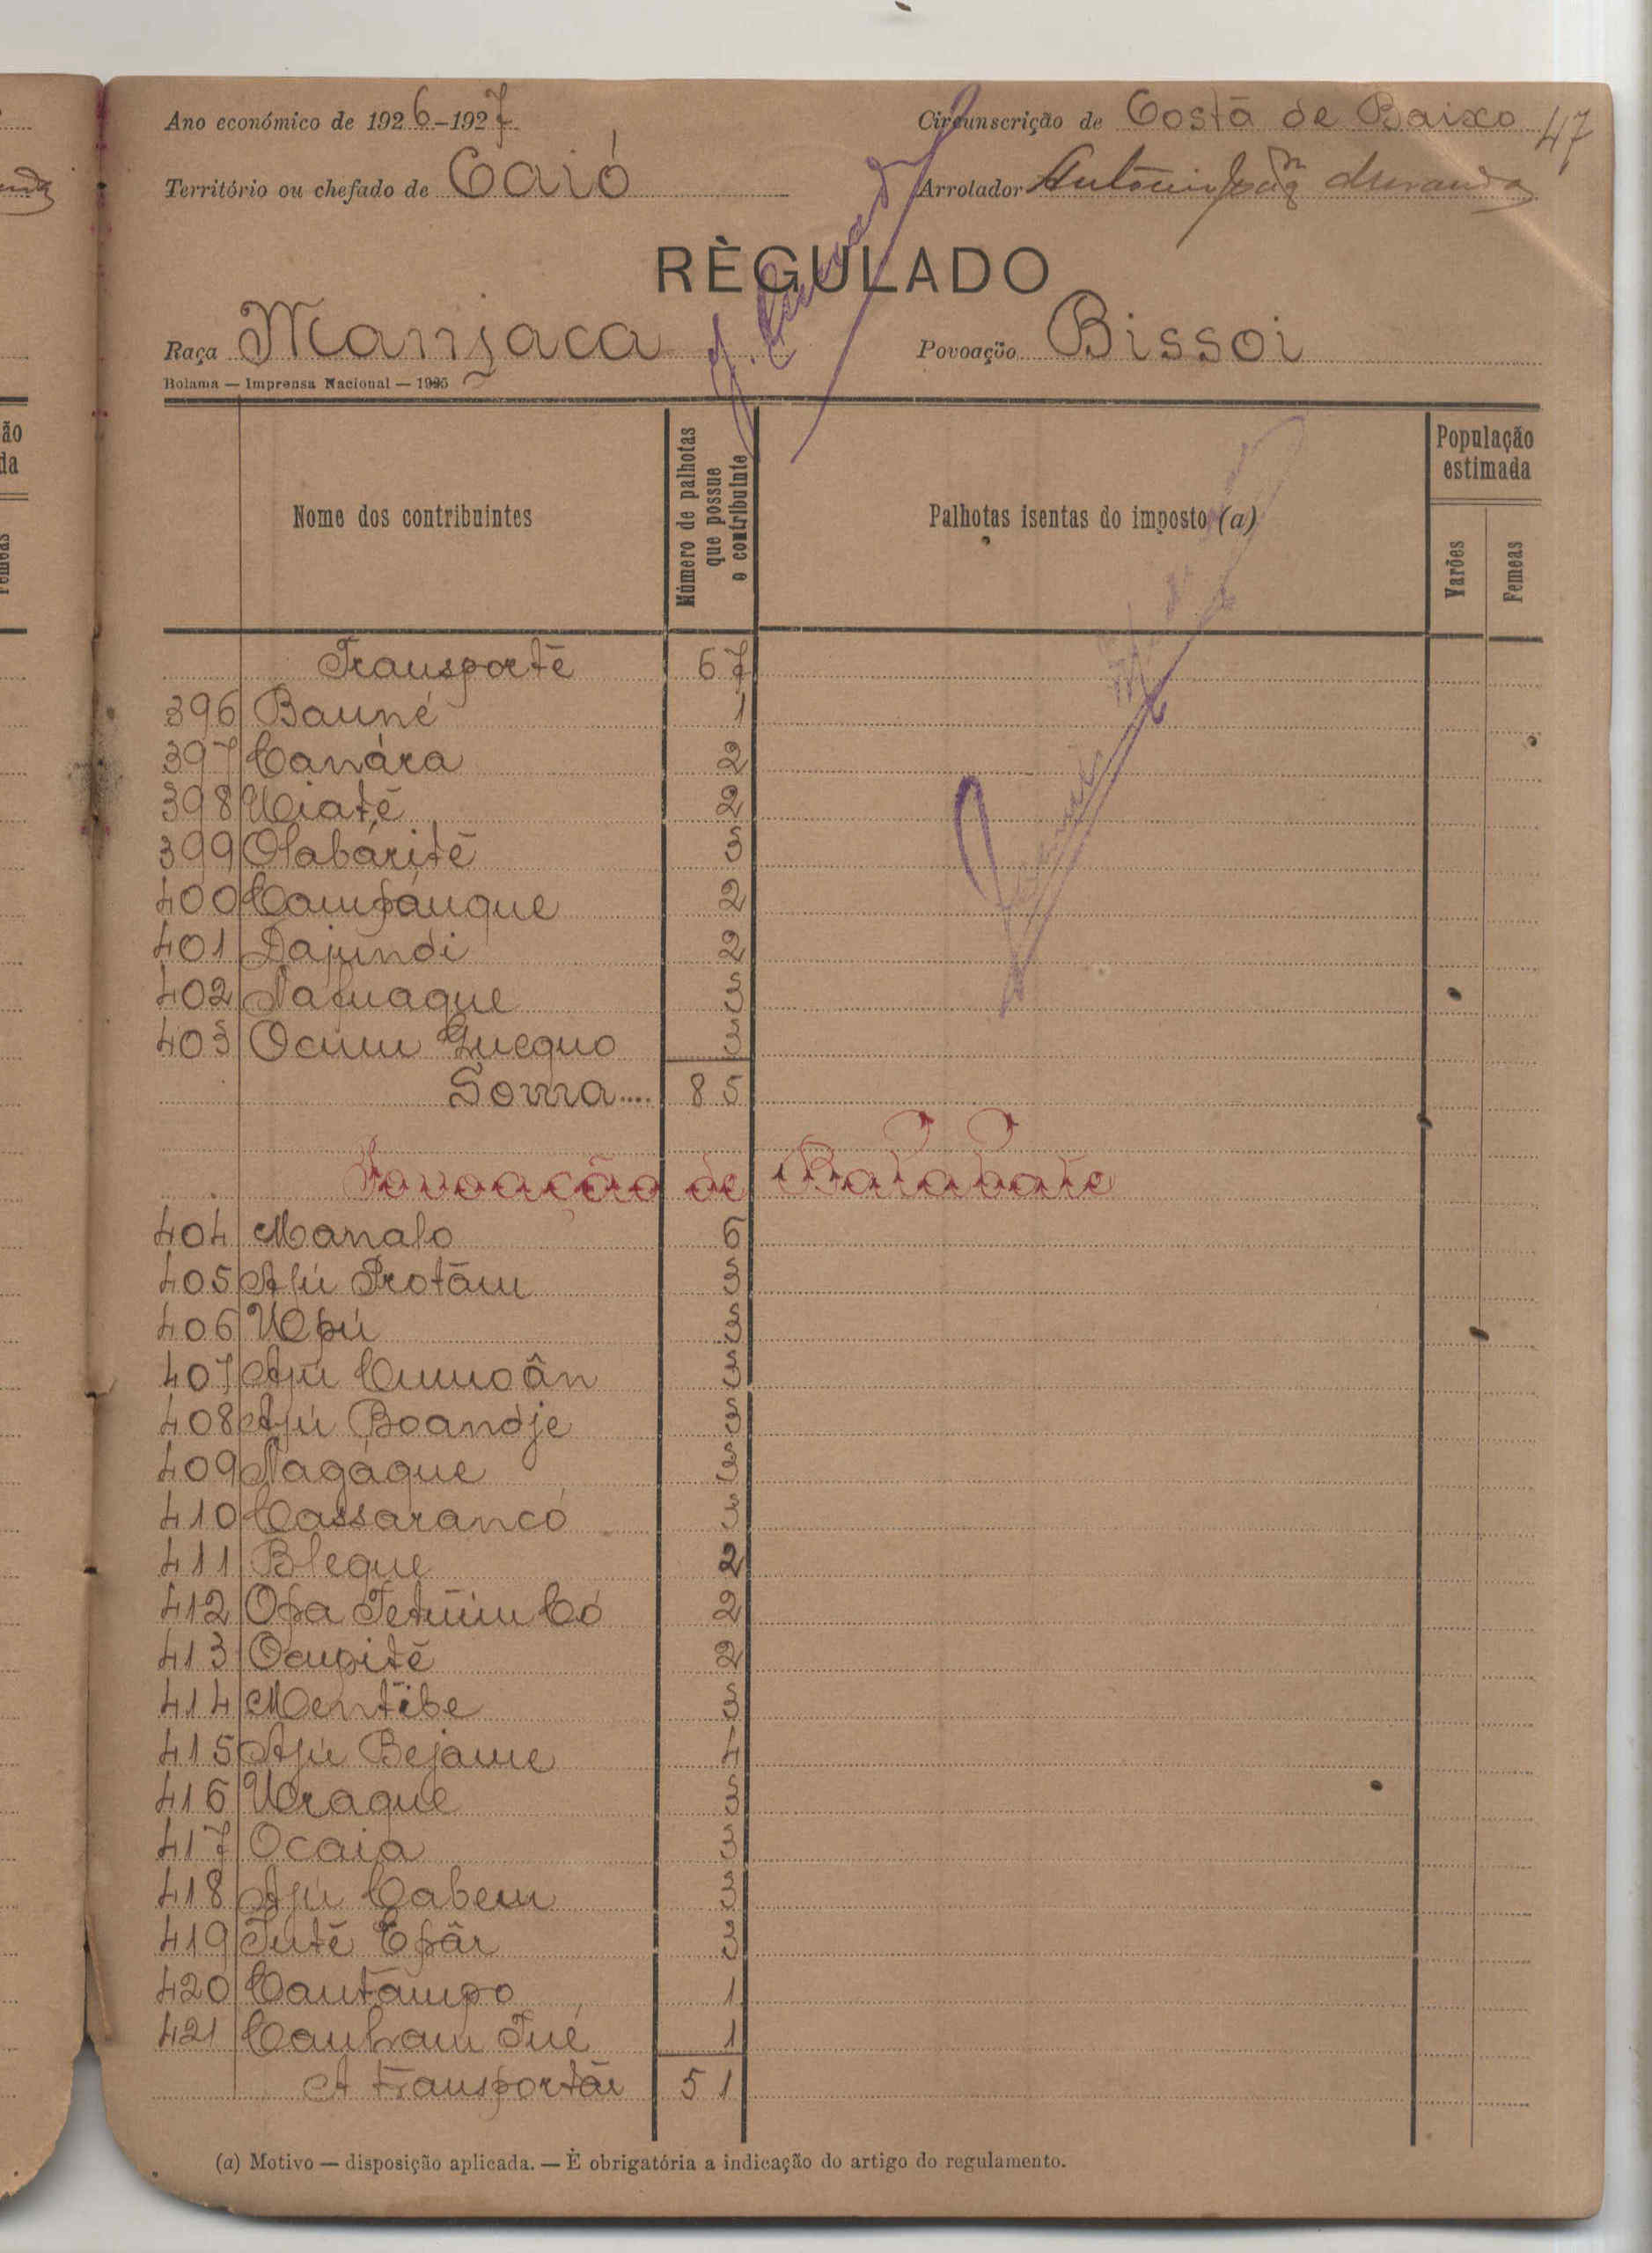 Ano económico de 1926-1927 Circunscrição de Costa de Baixo 47
Território ou chefado de Caió Arrolador António
RÈGULADO
Raça Manjaca Povoação Bissoi
Bolama — Imprensa Nacional — 1925
Nome dos contribuintes
Número de palhotas que possue o contribuinte
Palhotas isentas do imposto (a)
População estimada
Varões
Femeas
Transporte 67
396 Bauné 1
397 Canára 2
398 Uiaté 2
399 Olabárité 3
400 Campánque 2
401 Dajundi 2
402 Nafuaque 3
403 Ocum Quequo 3
Soma.... 85
Povoação de
404 Manalo 6
405 Afú Protâm 3
406 UOpú 3
407 Apú Cumoân 3
408 Apú Boandje 3
409 Nagáque 3
410 Cassarancó 3
411 Bleque 2
412 Opa Tetúim Có 2
413 Ocupité 2
414 Mentibe 3
415 Apú Bejame 4
416 Uraque 3
417 Ocaia 3
418 Apú Cabem 3
419 Tuté Epâr 3
420 Cantâmpo 1
421 Tué 1
A transportar 51
(a) Motivo — disposição aplicada. — É obrigatória a indicação do artigo do regulamento.